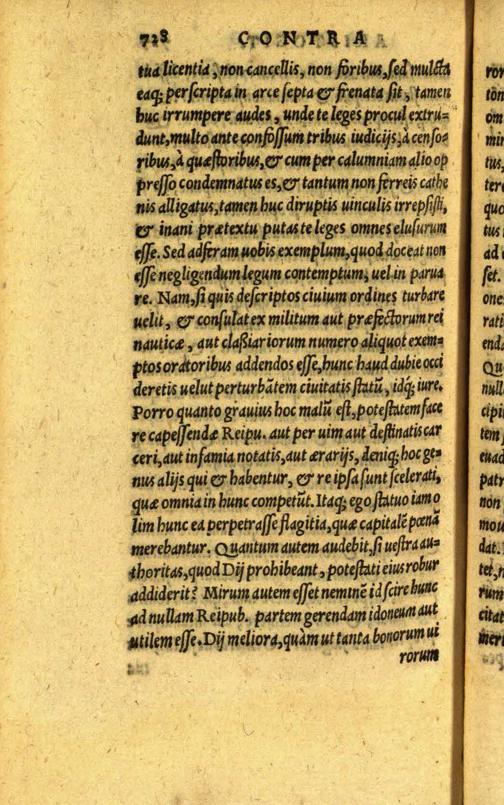 728 CONTRA
tua licentia, non cancellis, non foribus, sed mulcta
eaq; perscripta in arce septa & frenata sit, tamen
huc irrumpere audes, unde te leges procul extru-
dunt, multo ante confossum tribus iudicijs, à censo-
ribus, à quæstoribus, & cum per calumniam alio op
presso condemnatus es, & tantum non ferreis cathe
nis alligatus, tamen huc diruptis uinculis irrepsisti,
& inani prætextu putas te leges omnes elusurum
esse. Sed adferam uobis exemplum, quod doceat non
esse negligendum legum contemptum, uel in parua
re. Nam, si quis descriptos ciuium ordines turbare
uelit, & consulat ex militum aut præfectorum rei
nauticæ, aut claßiariorum numero aliquot exem-
ptos oratoribus addendos esse, hunc haud dubie occi
deretis uelut perturbãtem ciuitatis statũ, idq; iure.
Porro quanto grauius hoc malũ est, potestatem face
re capessendæ Reipu. aut per uim aut destinatis car
ceri, aut infamia notatis, aut ærarijs, deniq; hoc ge-
nus alijs qui & habentur, & re ipsa sunt scelerati,
quæ omnia in hunc competũt. Itaq; ego statuo iam o
lim hunc ea perpetrasse flagitia, quæ capitalẽ pœnã
merebantur. Quantum autem audebit, si uestra au-
thoritas, quod Dij prohibeant, potestati eius robur
addiderit? Mirum autem esset neminẽ id scire hunc
ad nullam Reipub. partem gerendam idoneum aut
utilem esse. Dij meliora, quàm ut tanta bonorum ui
rorum